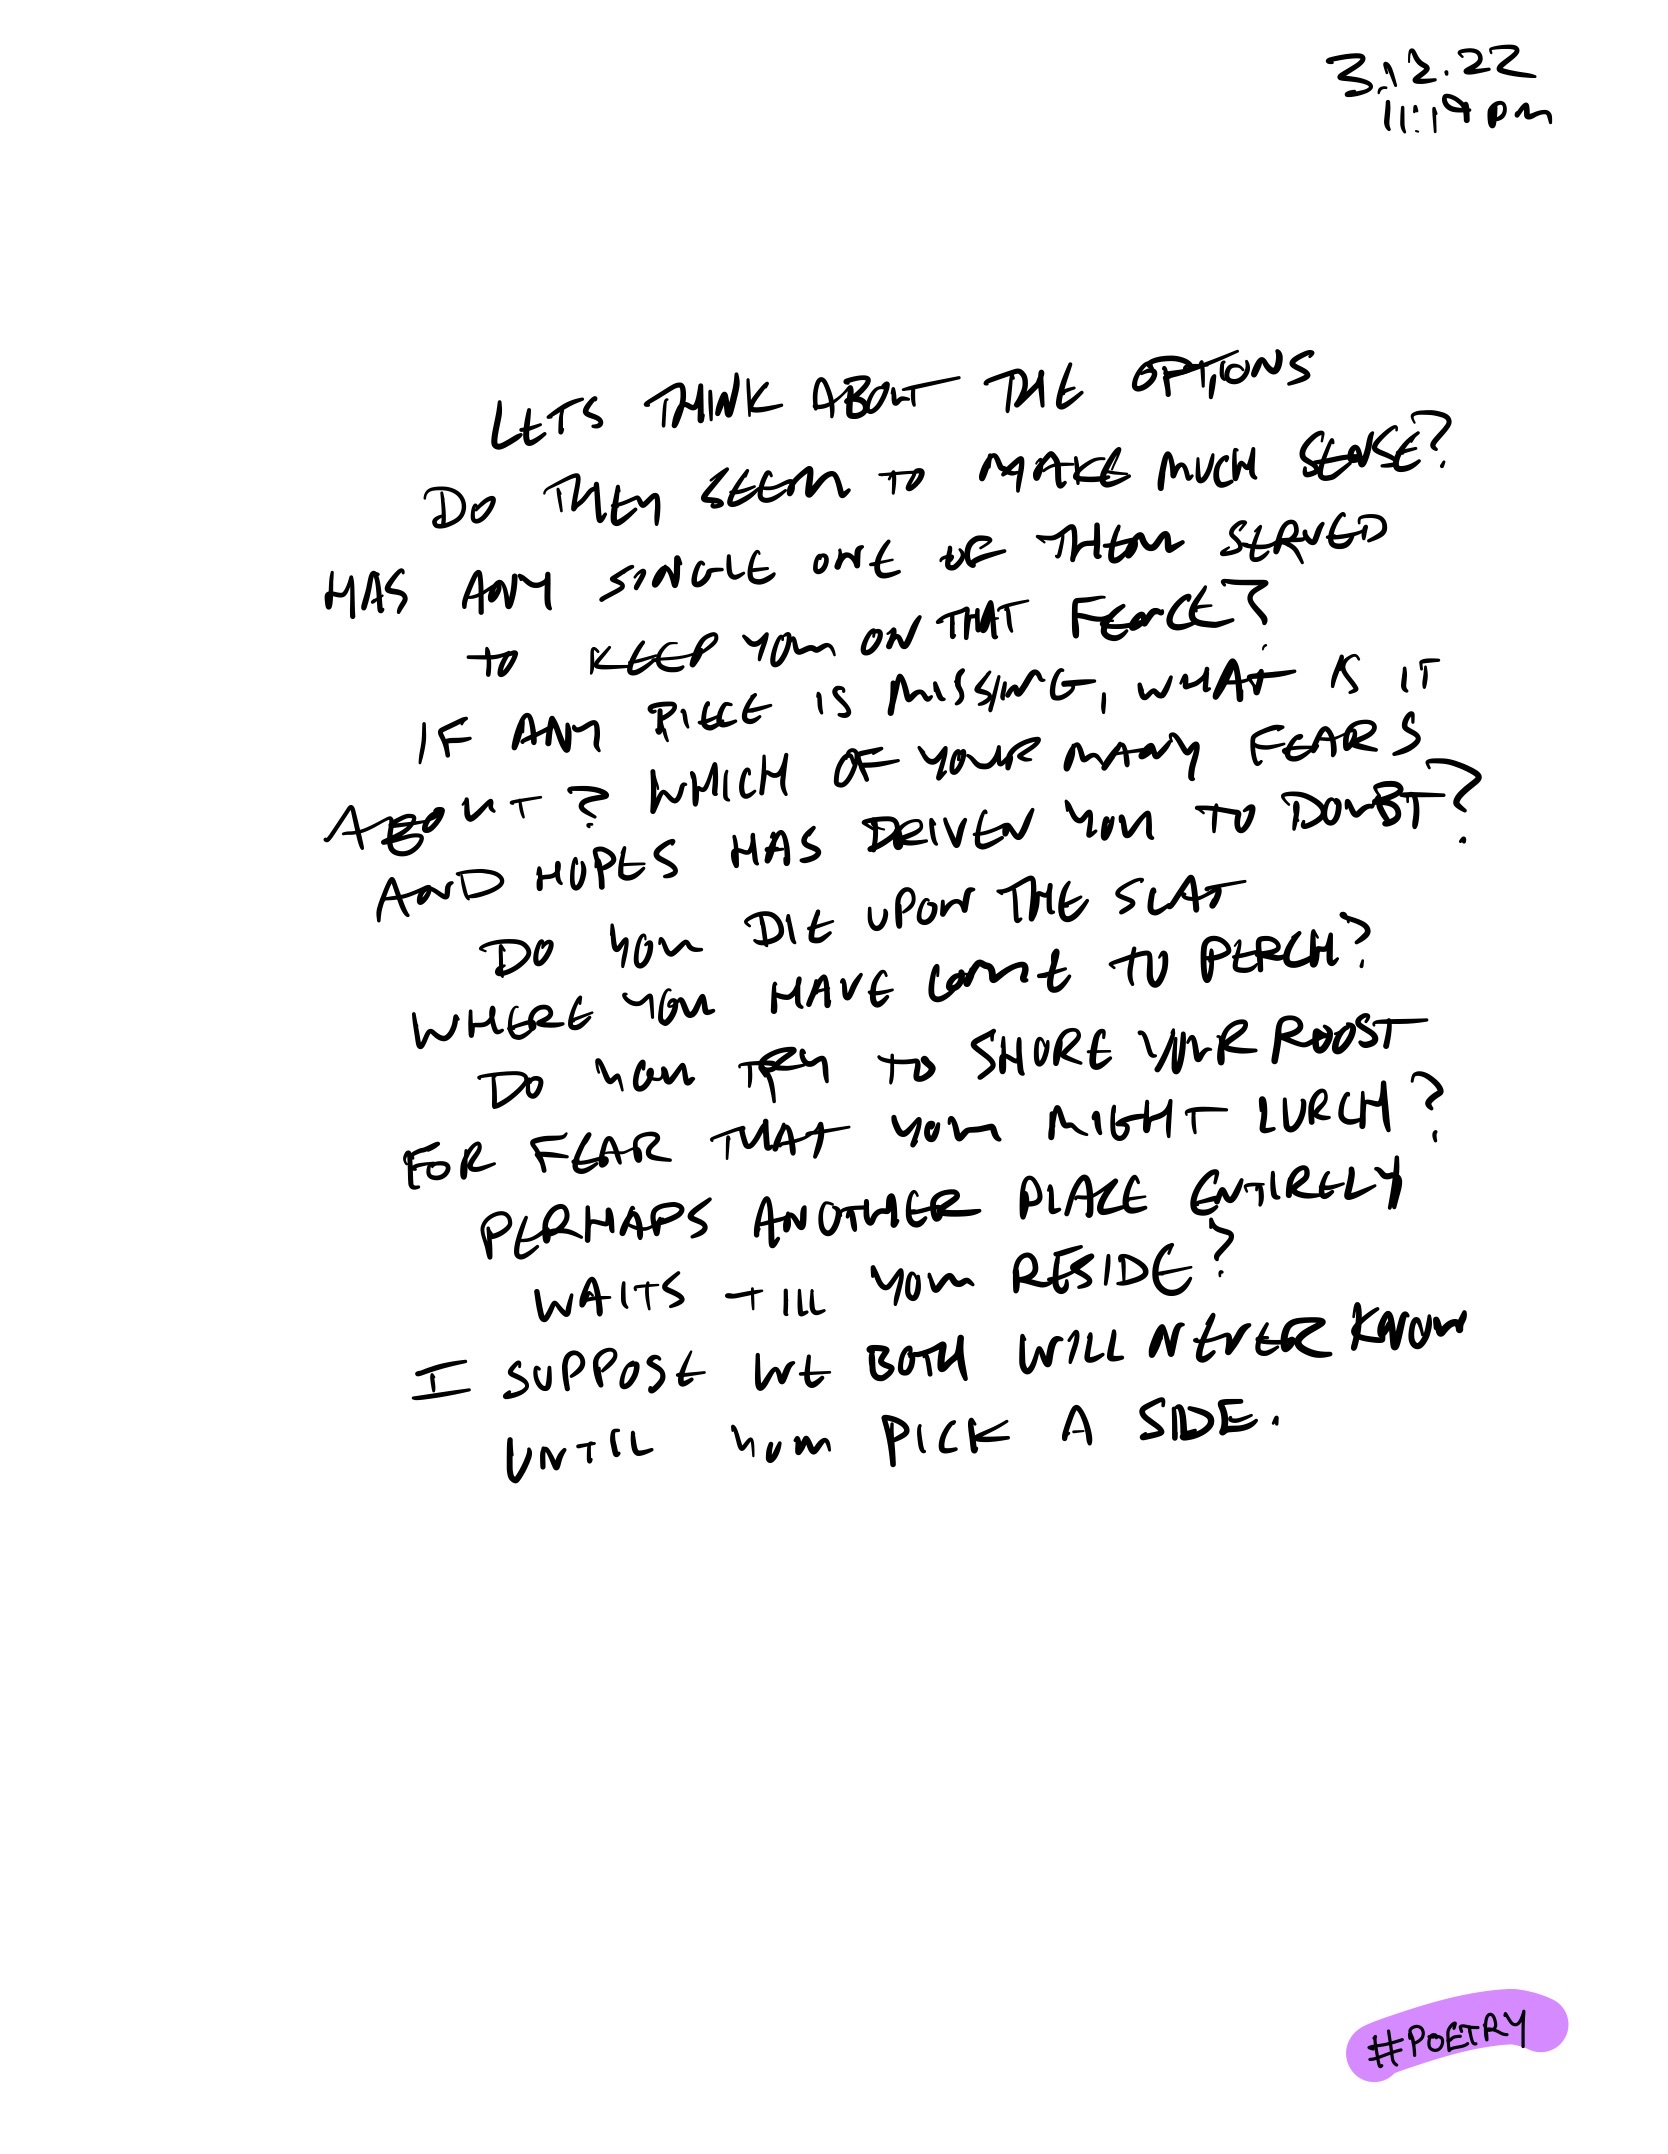 3.12.22
11:19 pm
LETS THINK ABOUT THE OPTIONS
DO THEY SEEM TO MAKE MUCH SENSE?
HAS ANY SINGLE ONE OF THEM SERVED
TO KEEP YOU ON THAT FENCE?
IF ANY PIECE IS MISSING, WHAT IS IT
ABOUT? WHICH OF YOUR MANY FEARS
AND HOPES HAS DRIVEN YOU TO DOUBT?
DO YOU DIE UPON THE SLAT
WHERE YOU HAVE COME TO PERCH?
DO YOU TRY TO SHORE YOUR ROOST
FOR FEAR THAT YOU MIGHT LURCH?
PERHAPS ANOTHER PLACE ENTIRELY
WAITS TILL YOU RESIDE?
I SUPPOSE WE BOTH WILL NEVER KNOW
UNTIL YOU PICK A SIDE.
#POETRY